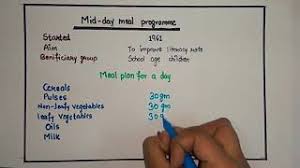 Mid-day meal programme
Started 1961
Aim To improve literacy rate
Benificiary group School age children
Meal plan for a day
Cereals
Pulses 30gm
Non-leafy vegetables 30gm
leafy vegetables 30g
Oils
Milk